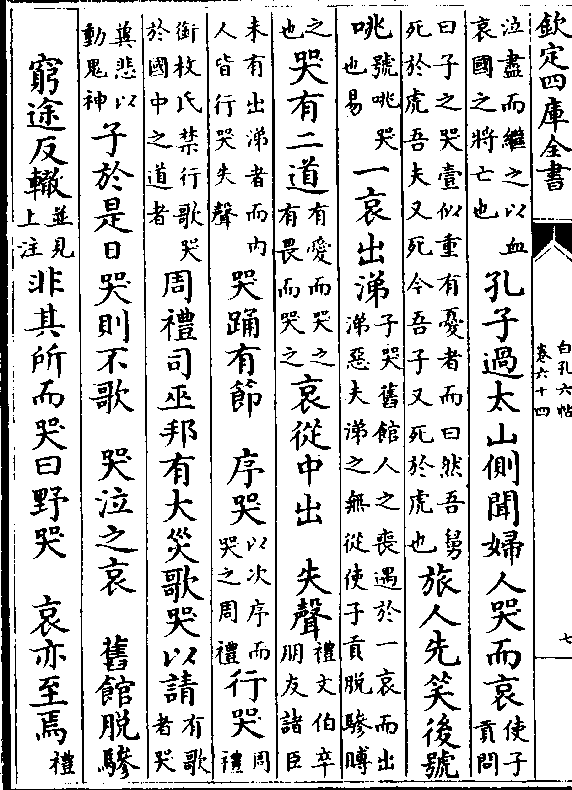 欽定四庫全書
白孔六帖
卷六十四
七
泣盡而繼之以血
哀國之將亡也
孔子過太山側聞婦人哭而哀
使子
貢問
曰子之哭壹似重有憂者而曰然吾舅
死於虎吾夫又死今吾子又死於虎也
旅人先笑後號
咷
號咷哭
也易
一哀出涕
子哭舊館人之喪遇於一哀而出
涕惡夫涕之無從使子貢脱驂賻
之
也
哭有二道
有愛而哭之
有畏而哭之
哀從中出 失聲
禮文伯卒
朋友諸臣
未有出涕者而内
人皆行哭失聲
哭踊有節 序哭
以次序而
哭之周禮
行哭
周
禮
銜枚氏禁行歌哭
於國中之道者
周禮司巫邦有大災歌哭以請
有歌
者哭
兾悲以
動鬼神
子於是日哭則不歌 哭泣之哀 舊館脱驂
窮途反轍
並見
上注
非其所而哭曰野哭 哀亦至焉
禮